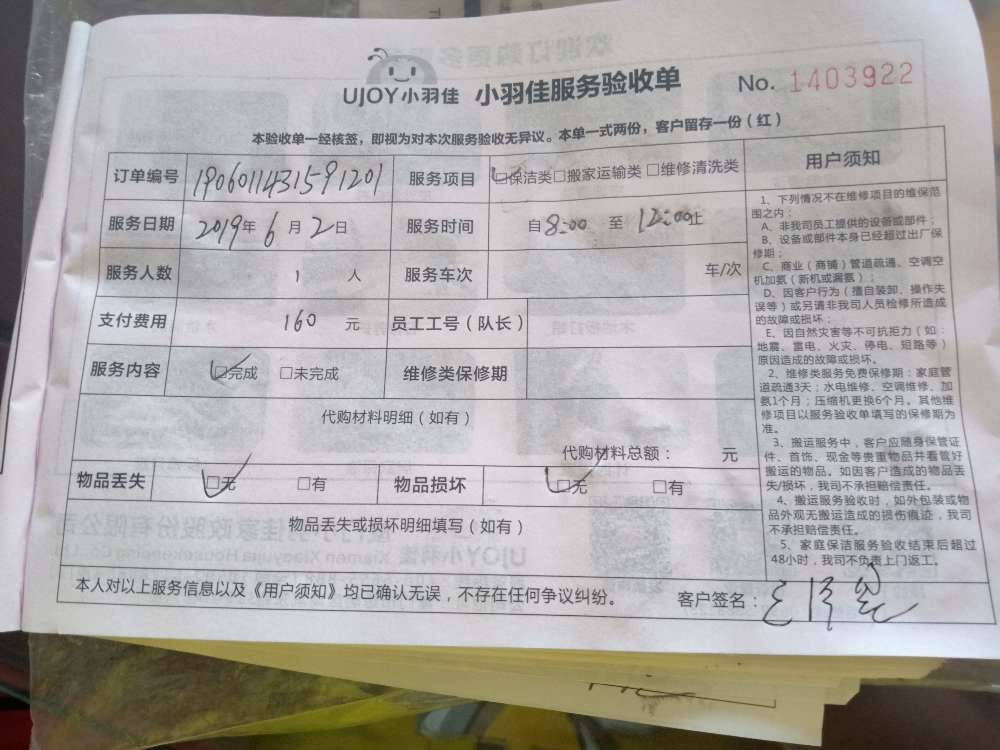 UJOY小羽佳 小羽佳服务验收单 No. 1403922
本验收单一经核签，即视为对本次服务验收无异议。本单一式两份，客户留存一份（红）
订单编号 1906011431591201 服务项目 □保洁类□搬家运输类□维修清洗类
服务日期 2019年 6 月 2 日 服务时间 自8:00 至 12:00止
服务人数 1 人 服务车次 车/次
支付费用 160 元 员工工号（队长）
服务内容 □完成 □未完成 维修类保修期
代购材料明细（如有）
代购材料总额： 元
物品丢失 □无 □有 物品损坏 □无 □有
物品丢失或损坏明细填写（如有）
本人对以上服务信息以及《用户须知》均已确认无误，不存在任何争议纠纷。 客户签名：
用户须知
1、下列情况不在维修项目的维保范
围之内：
A、非我司员工提供的设备或部件；
B、设备或部件本身已经超过出厂保
修期；
C、商业（商铺）管道疏通、空调空
机加氨（新机或漏氨）；
D、因客户行为（擅自装卸、操作失
误等）或另请非我司人员检修所造成
的故障或损坏；
E、因自然灾害等不可抗拒力（如：
地震、雷电、火灾、停电、短路等）
原因造成的故障或损坏。
2、维修类服务免费保修期：家庭管
道疏通3天；水电维修、空调维修、加
氨1个月；压缩机更换6个月。其他维
修项目以服务验收单填写的保修期为
准。
3、搬运服务中，客户应随身保管证
件、首饰、现金等贵重物品并看管好
搬运的物品。如因客户造成的物品丢
失/损坏，我司不承担赔偿责任。
4、搬运服务验收时，如外包装或物
品外观无搬运造成的损伤痕迹，我司
不承担赔偿责任。
5、家庭保洁服务验收结束后超过
48小时，我司不负责上门返工。